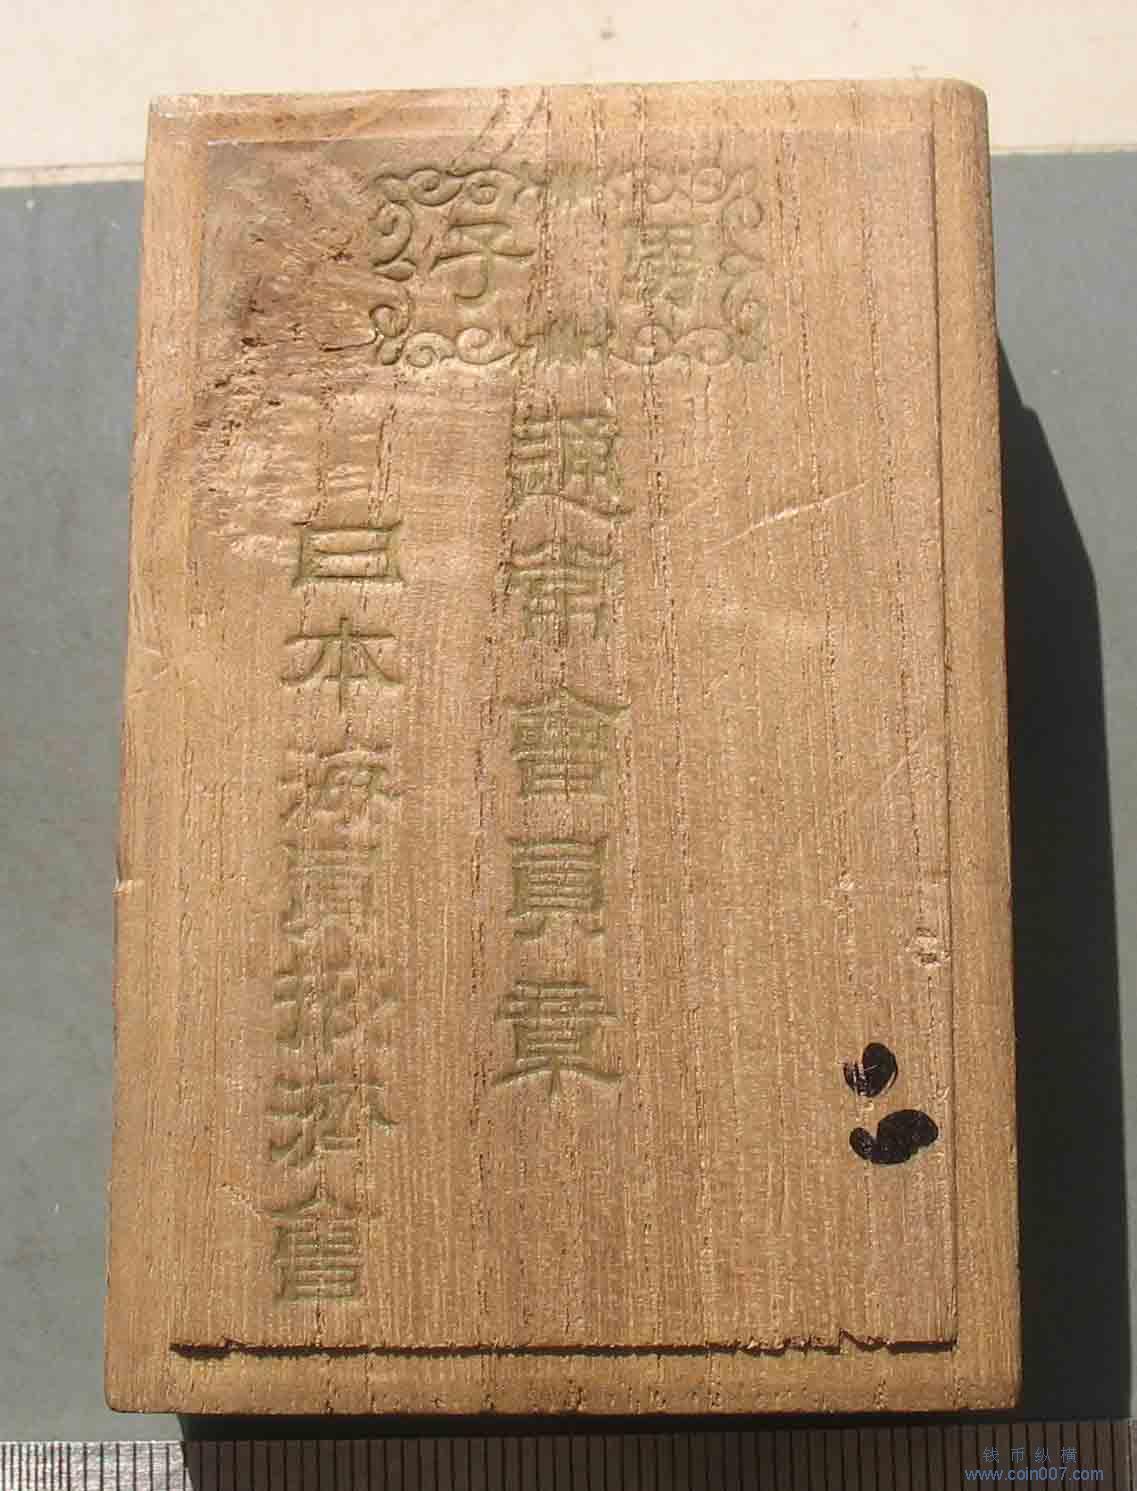 男子
通常會員章
日本海員掖濟會
钱币纵横
www.coin007.com